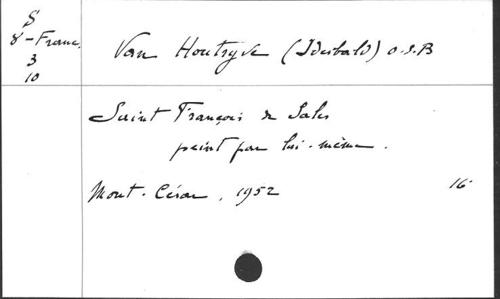 S
8-Franc.
3
10
Van Houtryve (Idesbald) O.S.B
Saint François de Sales
peint par lui-même.
Mont-César, 1952
16